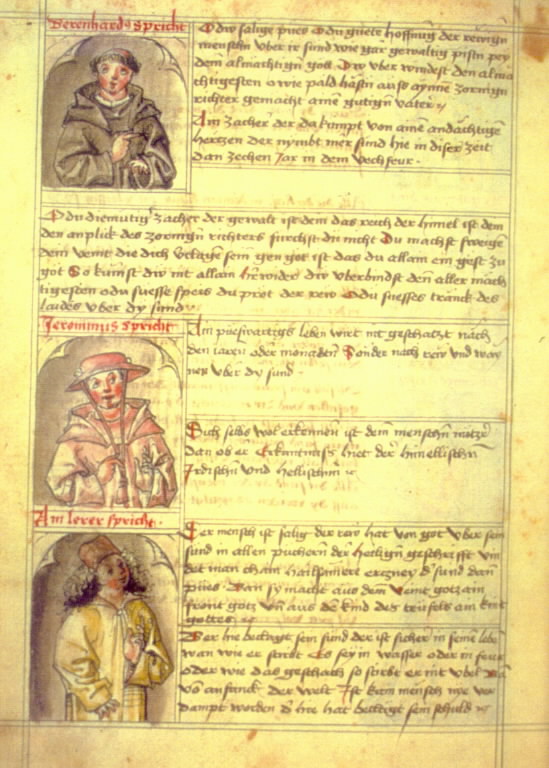 Berenhardus spricht
O dw salige puess O du guete hoffnung der rewigen
menschn vber ir sund wie gar gewaltig pistu pey
dem almachtign got Dw vber windest den alma
chtigesten o wie pald hastu aus ainem zornign
richter gemacht ainē gutign vater
Am zacher der da kumpt von ainē andachtigē
hertzen der nymbt mer sund hie in diser zeit
dan zechen Jar in dem vechfeur .
O du diemutig zacher der gewalt ist dein das reich der himel ist dein
den anplick des zornign richters furchst du nicht Du machst
dein veint die dich
got So kumst dw nit allain her wider dw vberbindst den aller mäch
tigesten o du suesse speis du prot der rew O du suesses tranck des
laides vber dy sund
Jeronimus spricht
Am puesswartigs leben wirt nit geschatzt nach
den iaren oder monaden Sonder nach rew vnd
vber dy sund .
Sich selbs wol erkennen ist dem menschn nutzer
dan ob er Erkantnuss hiet der himelischn
Irdischn vnd hellischnn
Am lerer spricht .
Der mensch ist salig der rew hat von got vber sein
sund in allen puchern der heilign geschrifft vin
det man chain hailsamere erczney d sund dann
pues . Dan sy macht aus dem veint gotz ain
freint gotz vn aus dē kind des teufels ain kint
gottes
Wer hie beclagt sein sund der ist sicher in seinē lebē
wan wie er stirbt Es sey in wasser oder in feur
oder wie das geschach so stirbt er nit vbel
vō anfanck der welt Ist kein mensch nye ver
dampt worden d hie hat beclagt sein schuld